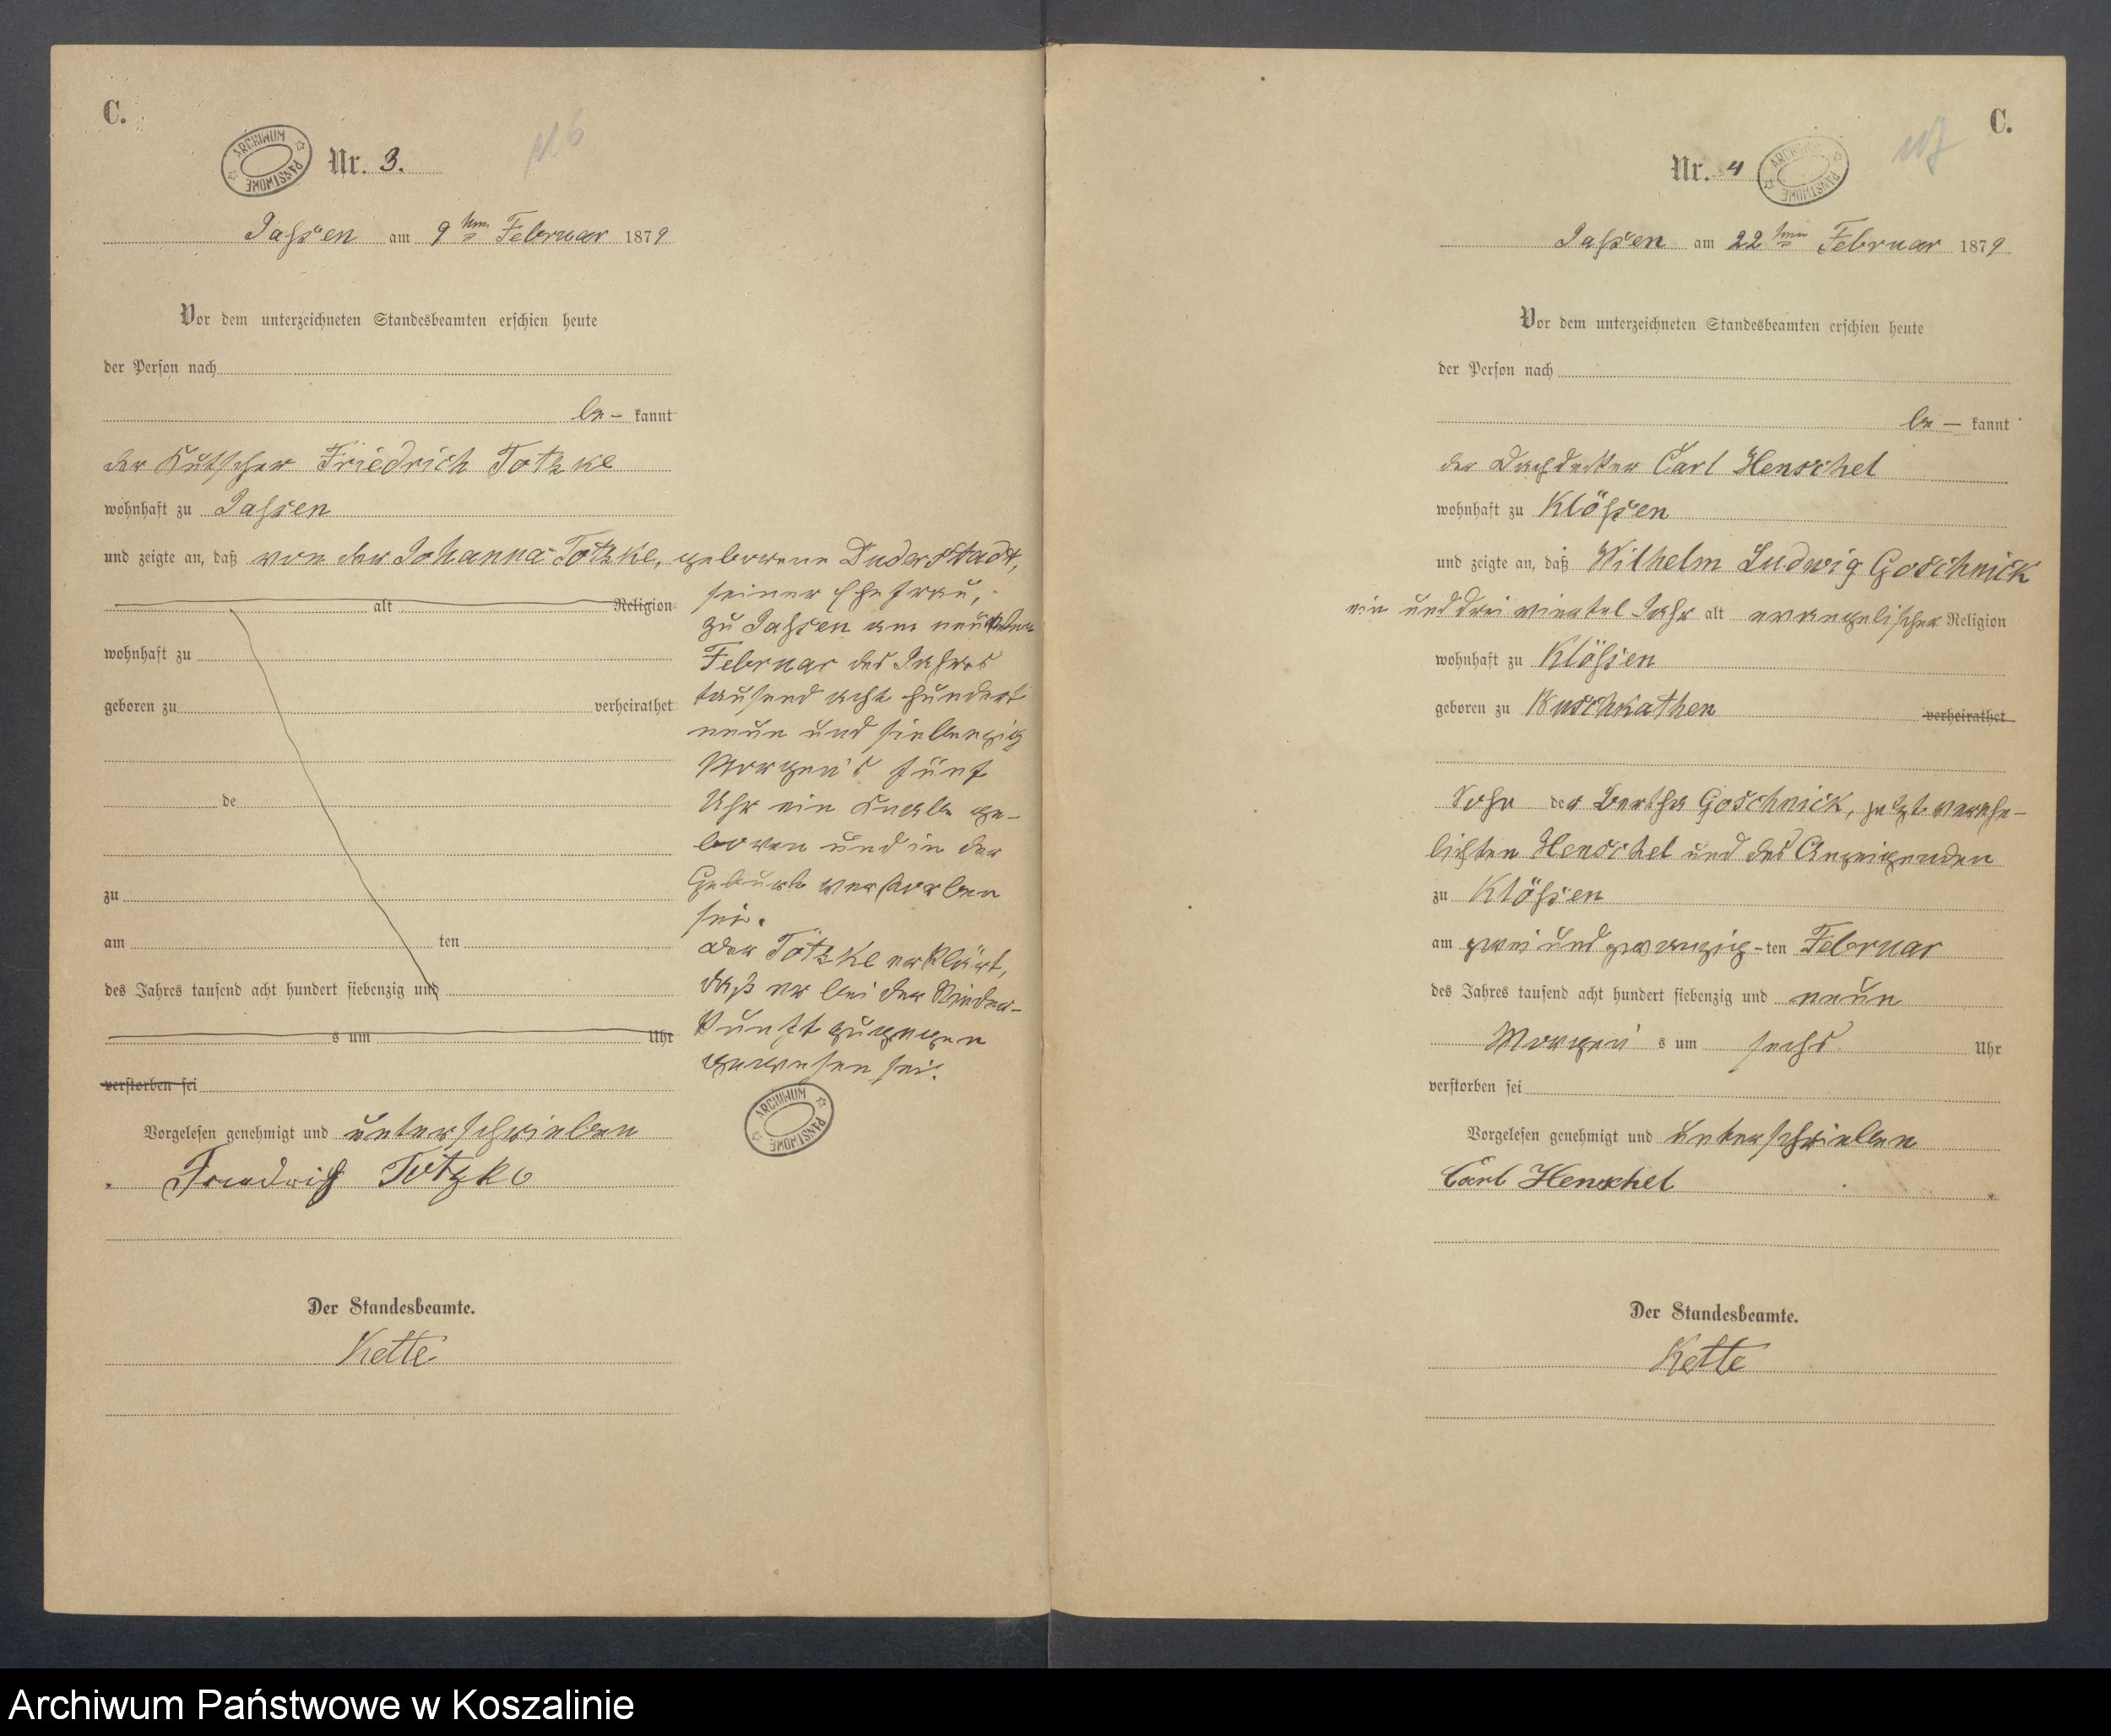 C.
ARCHIWUM PAŃSTWOWE
Nr. 3.
Jassen am 9ten Februar 1879
Vor dem unterzeichneten Standesbeamten erschien heute
der Person nach
be- kannt
der Kutscher Friedrich Totzke
wohnhaft zu Jassen
und zeigte an, daß von der Johanna Totzke, geborene Duderstadt,
seiner Ehefrau,
alt Religion
zu Jassen am neunten
wohnhaft zu
Februar des Jahres
geboren zu verheirathet
tausend acht hundert
neun und siebenzig
Morgens fünf
de
Uhr ein Knabe ge-
boren und in der
Geburt verstorben
zu
sei.
am ten
Der Totzke erklärt,
des Jahres tausend acht hundert siebenzig und
daß er bei der Nieder-
s um Uhr
kunft zugegen
gewesen sei.
verstorben sei
ARCHIWUM PAŃSTWOWE
Vorgelesen genehmigt und unterschrieben
Friedrich Totzke
Der Standesbeamte.
Kette
C.
Nr. 4
ARCHIWUM PAŃSTWOWE
Jassen am 22ten Februar 1879
Vor dem unterzeichneten Standesbeamten erschien heute
der Person nach
be- kannt
der Dachdecker Carl Henschel
wohnhaft zu Klössen
und zeigte an, daß Wilhelm Ludwig Goschnick
ein und drei viertel Jahr alt evangelischer Religion
wohnhaft zu Klössen
geboren zu Buschkathen verheirathet
Sohn der Bertha Goschnick, jetzt verehe-
lichten Henschel und des Anzeigenden
zu Klössen
am zwei und zwanzig-ten Februar
des Jahres tausend acht hundert siebenzig und neun
Morgens um sechs Uhr
verstorben sei
Vorgelesen genehmigt und unterschrieben
Carl Henschel
Der Standesbeamte.
Kette
Archiwum Państwowe w Koszalinie